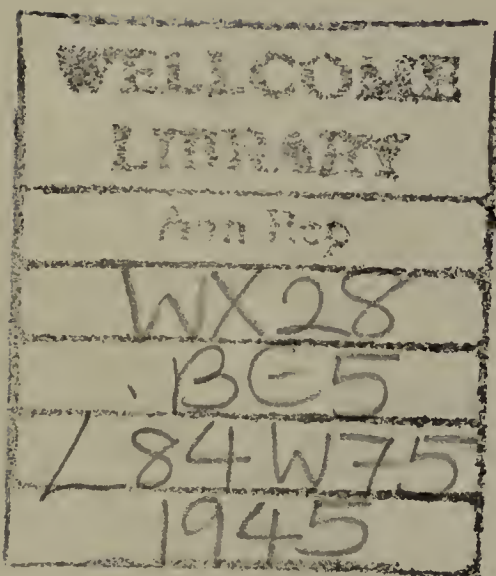 WELLCOME
LIBRARY
Ann Rep
WX28
.BE5
L84W75
1945